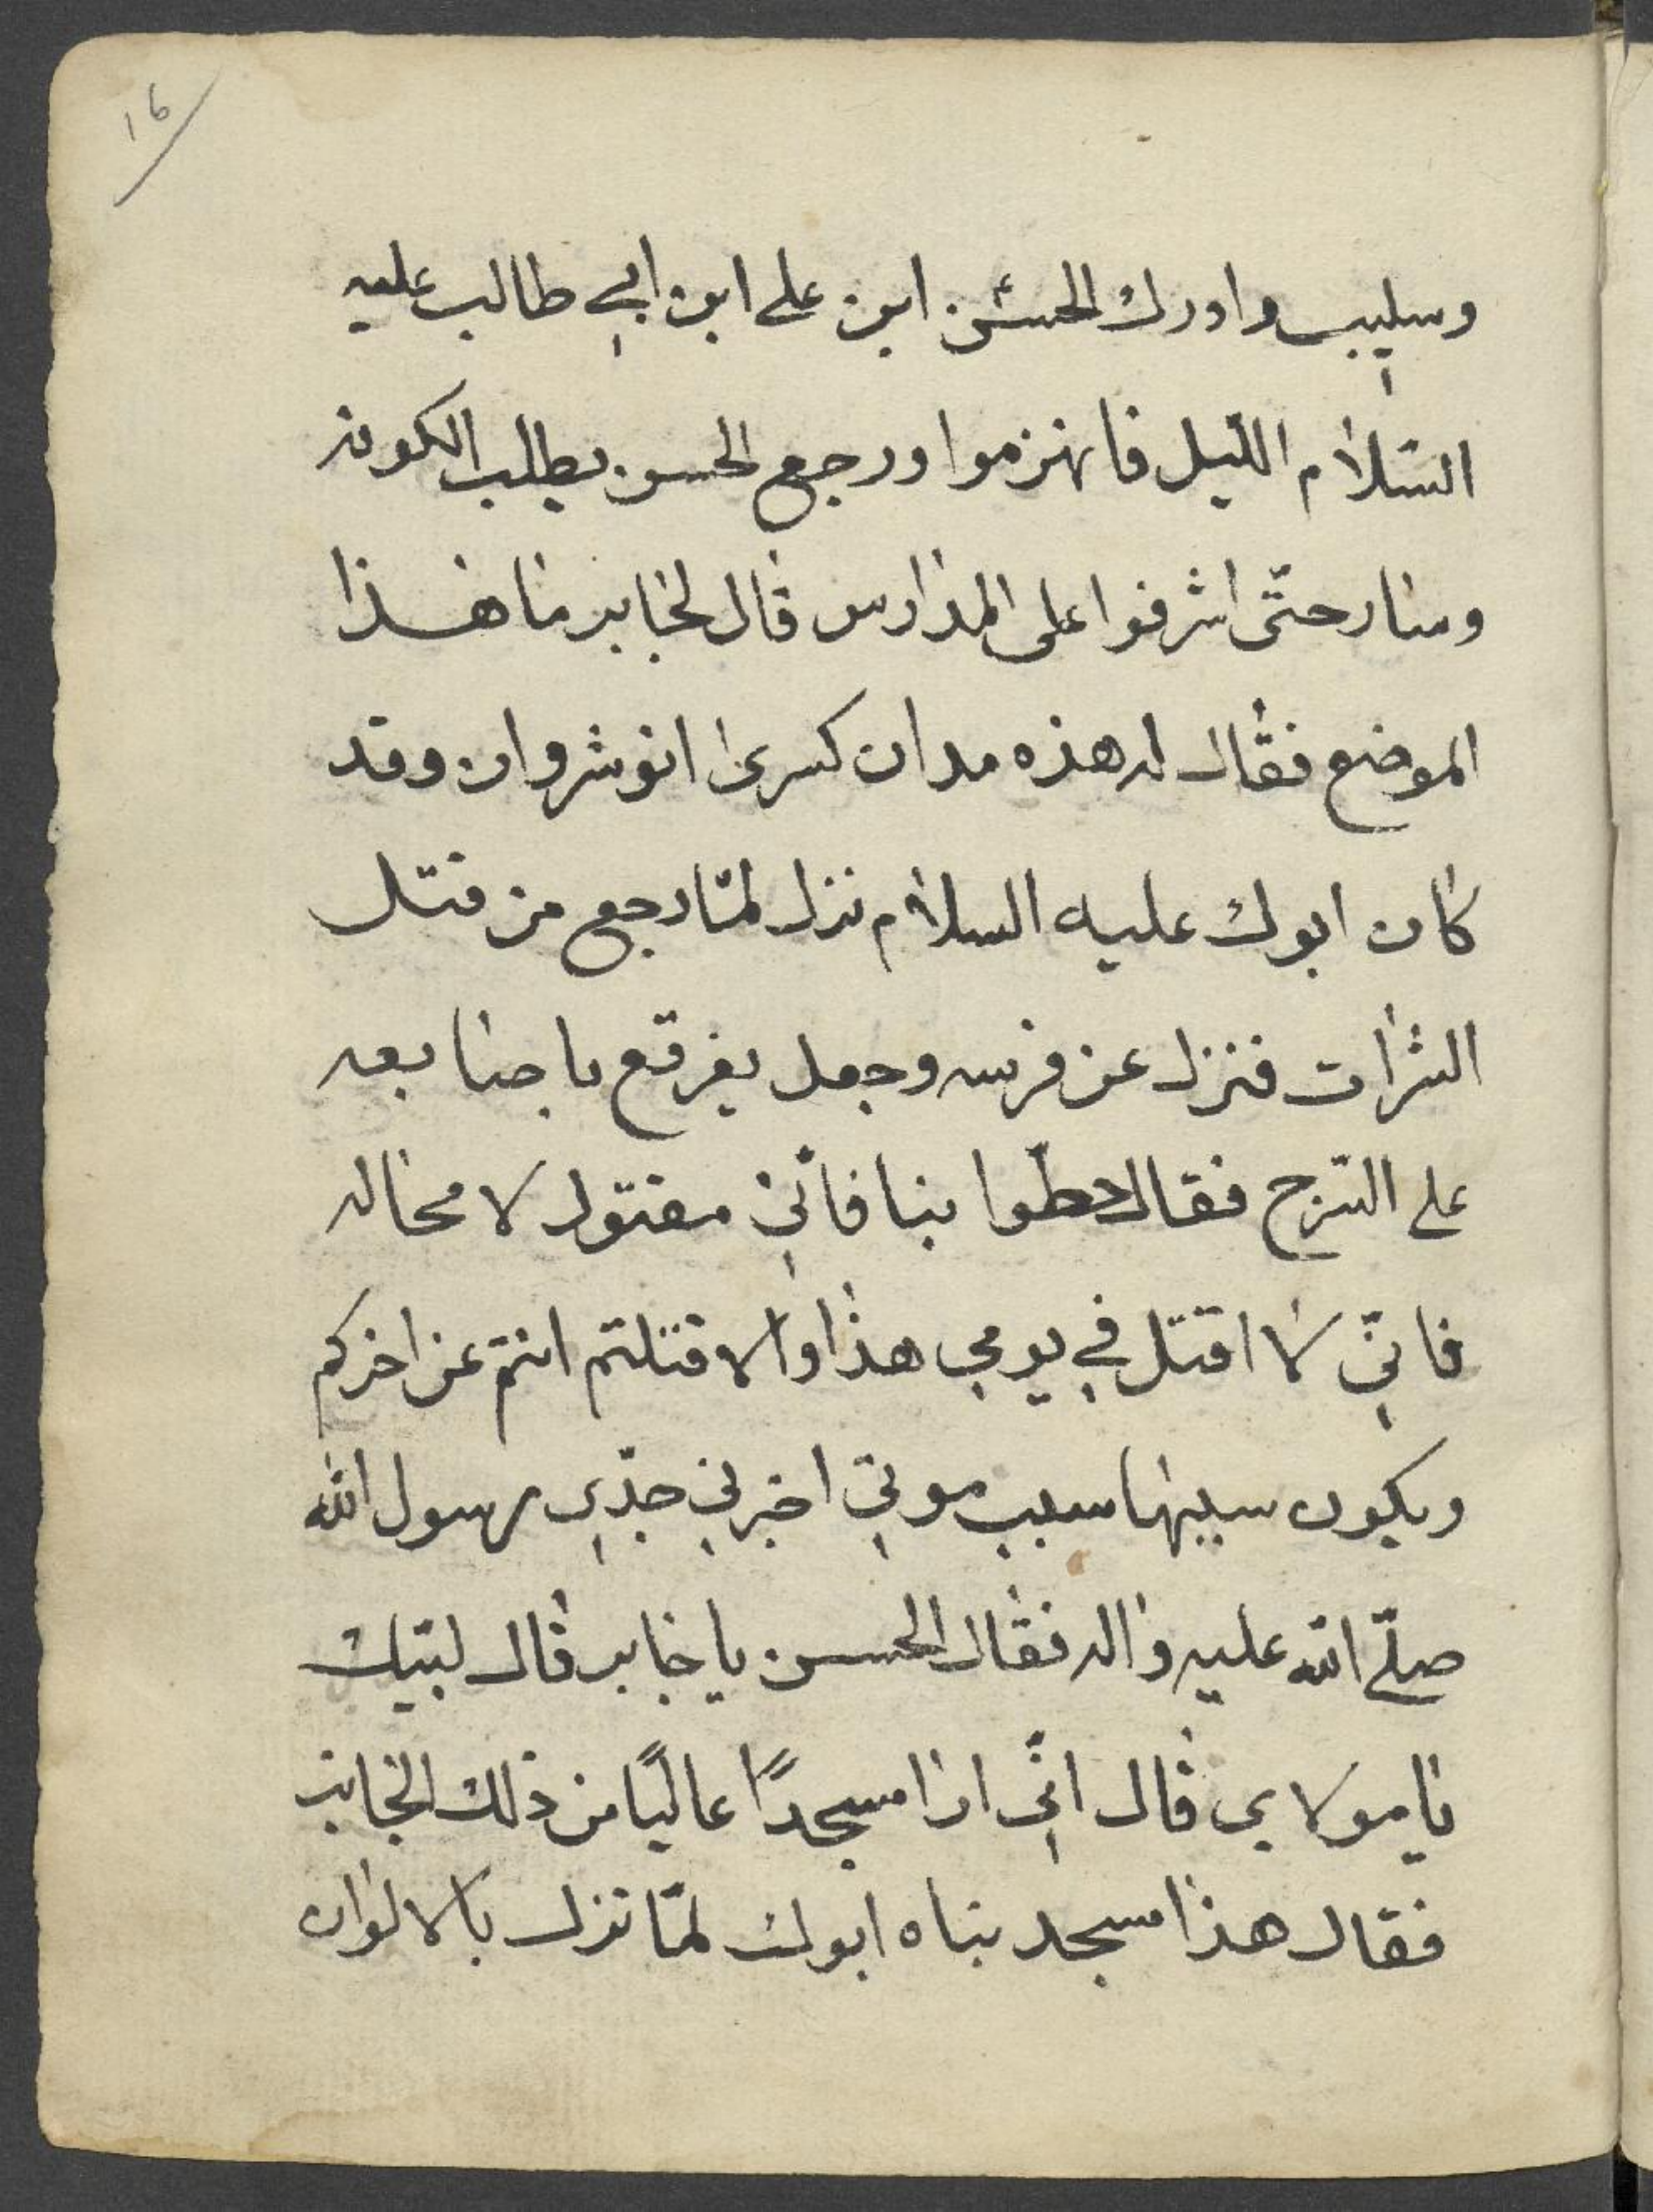 ١٦
وسليب وادرك الحسن ابن على ابن ابي طالب عليه
السّلام الليل فانهزموا ورجع الحسن يطلب الكوفه
وسار حتّى اشرفوا على المدارس قال لجابر ما هذا
الموضع فقال له هذه مدان كسرى انوشروان وقد
كان ابوك عليه السلام نزل لمّا رجع من قتل
الشرات فنزل عن فرسه وجعل يفرقع باصابعه
على السّرج فقال حطّوا بنا فانّي مقتول لا محاله
فانّي لا اقتل في يومي هذا والا قتلتم انتم عن اخركم
ويكون سبيها سبب موتي اخبرني جدّي رسول الله
صلّى الله عليه واله فقال الحسن يا جابر قال لبّيك
يا مولاي قال انّي ارا مسجدًا عاليًا من ذلك الجانب
فقال هذا مسجد بناه ابوك لمّا نزل بالالوان